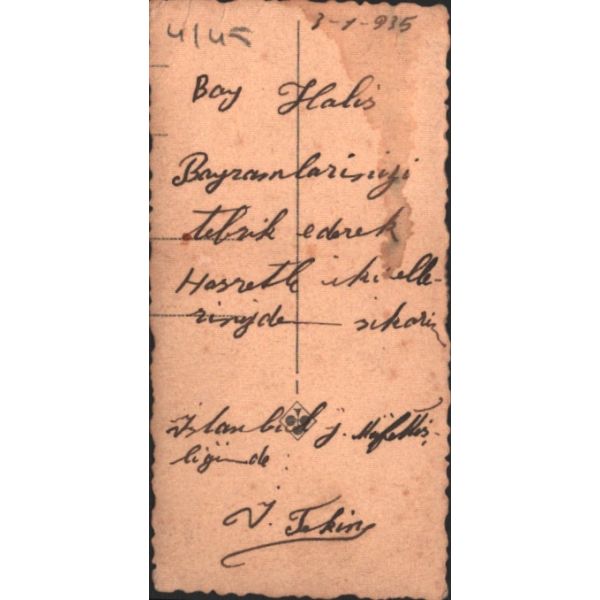 4/45
3-1-935
Bay Halis
Bayramlarinizi
tebrik ederek
Hasretle iki elle-
rinizde sikarim
İstanbul J. Müfettiş-
liğinde
İ. Tekin